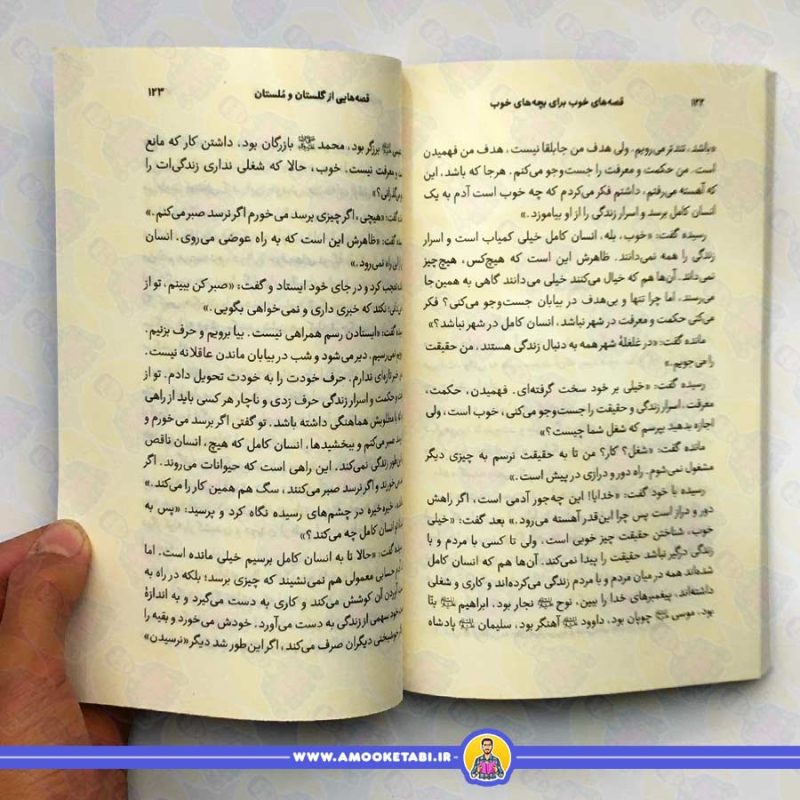 ۱۲۲
قصه‌های خوب برای بچه‌های خوب
«باشد، تندتر می‌رویم. ولی هدف من جابلقا نیست، هدف من فهمیدن
است. من حکمت و معرفت را جست‌وجو می‌کنم. هرجا که باشد. این
که آهسته می‌رفتم، داشتم فکر می‌کردم که چه خوب است آدم به یک
انسان کامل برسد و اسرار زندگی را از او بیاموزد.»
رسیده گفت: «خوب، بله، انسان کامل خیلی کمیاب است و اسرار
زندگی را همه نمی‌دانند. ظاهرش این است که هیچ‌کس، هیچ‌چیز
نمی‌داند. آن‌ها هم که خیال می‌کنند خیلی می‌دانند گاهی به همین‌جا
می‌رسند. اما چرا تنها و بی‌هدف در بیابان جست‌وجو می‌کنی؟ فکر
می‌کنی حکمت و معرفت در شهر نباشد، انسان کامل در شهر نباشد؟»
مانده گفت: «در غلغلهٔ شهر همه به دنبال زندگی هستند، من حقیقت
را می‌جویم.»
رسیده گفت: «خیلی بر خود سخت گرفته‌ای. فهمیدن، حکمت،
معرفت، اسرار زندگی و حقیقت را جست‌وجو می‌کنی، خوب است، ولی
اجازه بدهید بپرسم که شغل شما چیست؟»
مانده گفت: «شغل؟ کار؟ من تا به حقیقت نرسم به چیزی دیگر
مشغول نمی‌شوم. راه دور و درازی در پیش است.»
رسیده با خود گفت: «خدایا! این چه‌جور آدمی است، اگر راهش
دور و دراز است پس چرا این‌قدر آهسته می‌رود.» بعد گفت: «خیلی
خوب، شناختن حقیقت چیز خوبی است. ولی تا کسی با مردم و با
زندگی درگیر نباشد حقیقت را پیدا نمی‌کند. آن‌ها هم که انسان کامل
شده‌اند همه در میان مردم و با مردم زندگی می‌کرده‌اند و کاری و شغلی
داشته‌اند. پیغمبرهای خدا را ببین، نوح نجار بود، ابراهیم بنّا
بود، موسی چوپان بود، داوود آهنگر بود، سلیمان پادشاه
قصه‌هایی از گلستان و مُلستان
۱۲۳
برزگر بود، محمد بازرگان بود، داشتن کار که مانع
معرفت نیست. خوب، حالا که شغلی نداری زندگی‌ات را
گفت: «هیچی، اگر چیزی برسد می‌خورم اگر نرسد صبر می‌کنم.»
گفت: «ظاهرش این است که به راه عوضی می‌روی. انسان
این راه نمی‌رود.»
تعجب کرد و در جای خود ایستاد و گفت: «صبر کن ببینم، تو از
نکند که خبری داری و نمی‌خواهی بگویی.»
گفت: «ایستادن رسم همراهی نیست. بیا برویم و حرف بزنیم.
دیر می‌شود و شب در بیابان ماندن عاقلانه نیست.
تازه‌ای ندارم. حرف خودت را به خودت تحویل دادم. تو از
حکمت و اسرار زندگی حرف زدی و ناچار هر کسی باید از راهی
با مطلوبش هماهنگی داشته باشد. تو گفتی اگر برسد می‌خورم و
صبر می‌کنم و ببخشیدها، انسان کامل که هیچ، انسان ناقص
زندگی نمی‌کند. این راهی است که حیوانات می‌روند. اگر
می‌خورند و اگر نرسد صبر می‌کنند، سگ هم همین کار را می‌کند.»
خیره‌خیره در چشم‌های رسیده نگاه کرد و پرسید: «پس به
انسان کامل چه می‌کند؟»
گفت: «حالا تا به انسان کامل برسیم خیلی مانده است. اما
حسابی معمولی هم نمی‌نشیند که چیزی برسد؛ بلکه در راه به
آوردن آن کوشش می‌کند و کاری به دست می‌گیرد و به اندازهٔ
خود سهمی از زندگی به دست می‌آورد. خودش می‌خورد و بقیه را
خوشبختی دیگران صرف می‌کند، اگر این‌طور شد دیگر «نرسیدن»
WWW.AMOOKETABI.IR